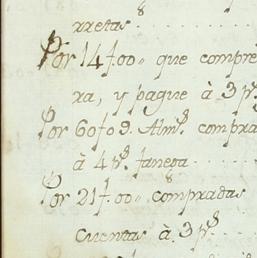 rretas
Por 14 f.00„ que compre
ra, y pague à 3 p.s
Por 60 f 09. Alm.s compra
à 4 p.s fanega
Por 21 f.00„ compradas
cuentas à 3 p.s